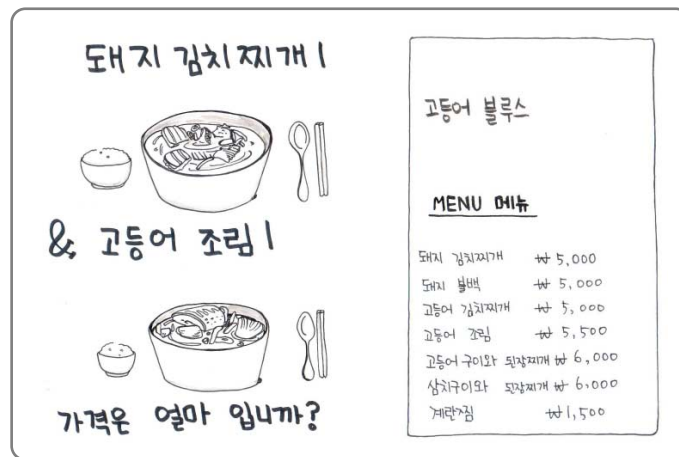 돼지 김치찌개 1
& 고등어 조림 1
가격은 얼마 입니까?
고등어 블루스
MENU 메뉴
돼지 김치찌개 ₩ 5,000
돼지 불백 ₩ 5,000
고등어 김치찌개 ₩ 5,000
고등어 조림 ₩ 5,500
고등어 구이와 된장찌개 ₩ 6,000
삼치구이와 된장찌개 ₩ 6,000
계란찜 ₩1,500